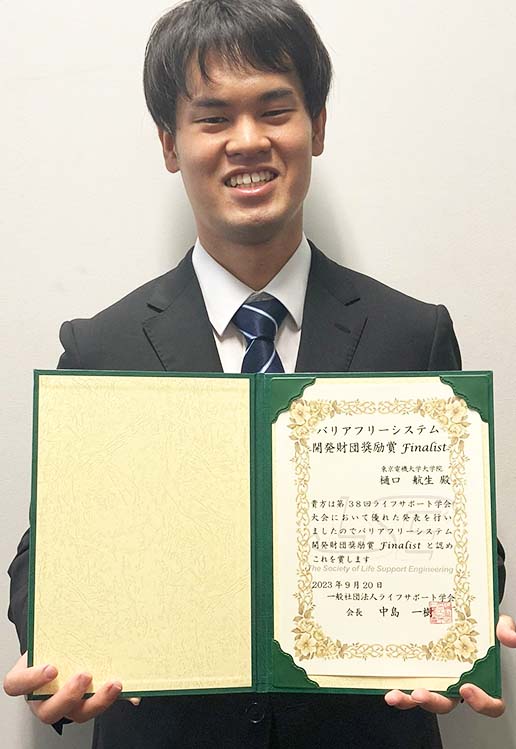 バリアフリーシステム
開発財団奨励賞 Finalist
東京電機大学大学院
樋口 航生 殿
貴方は第38回ライフサポート学会
大会において優れた発表を行い
ましたのでバリアフリーシステム
開発財団奨励賞 Finalist と認め
これを賞します
The Society of Life Support Engineering
2023年9月20日
一般社団法人ライフサポート学会
会長 中島 一樹